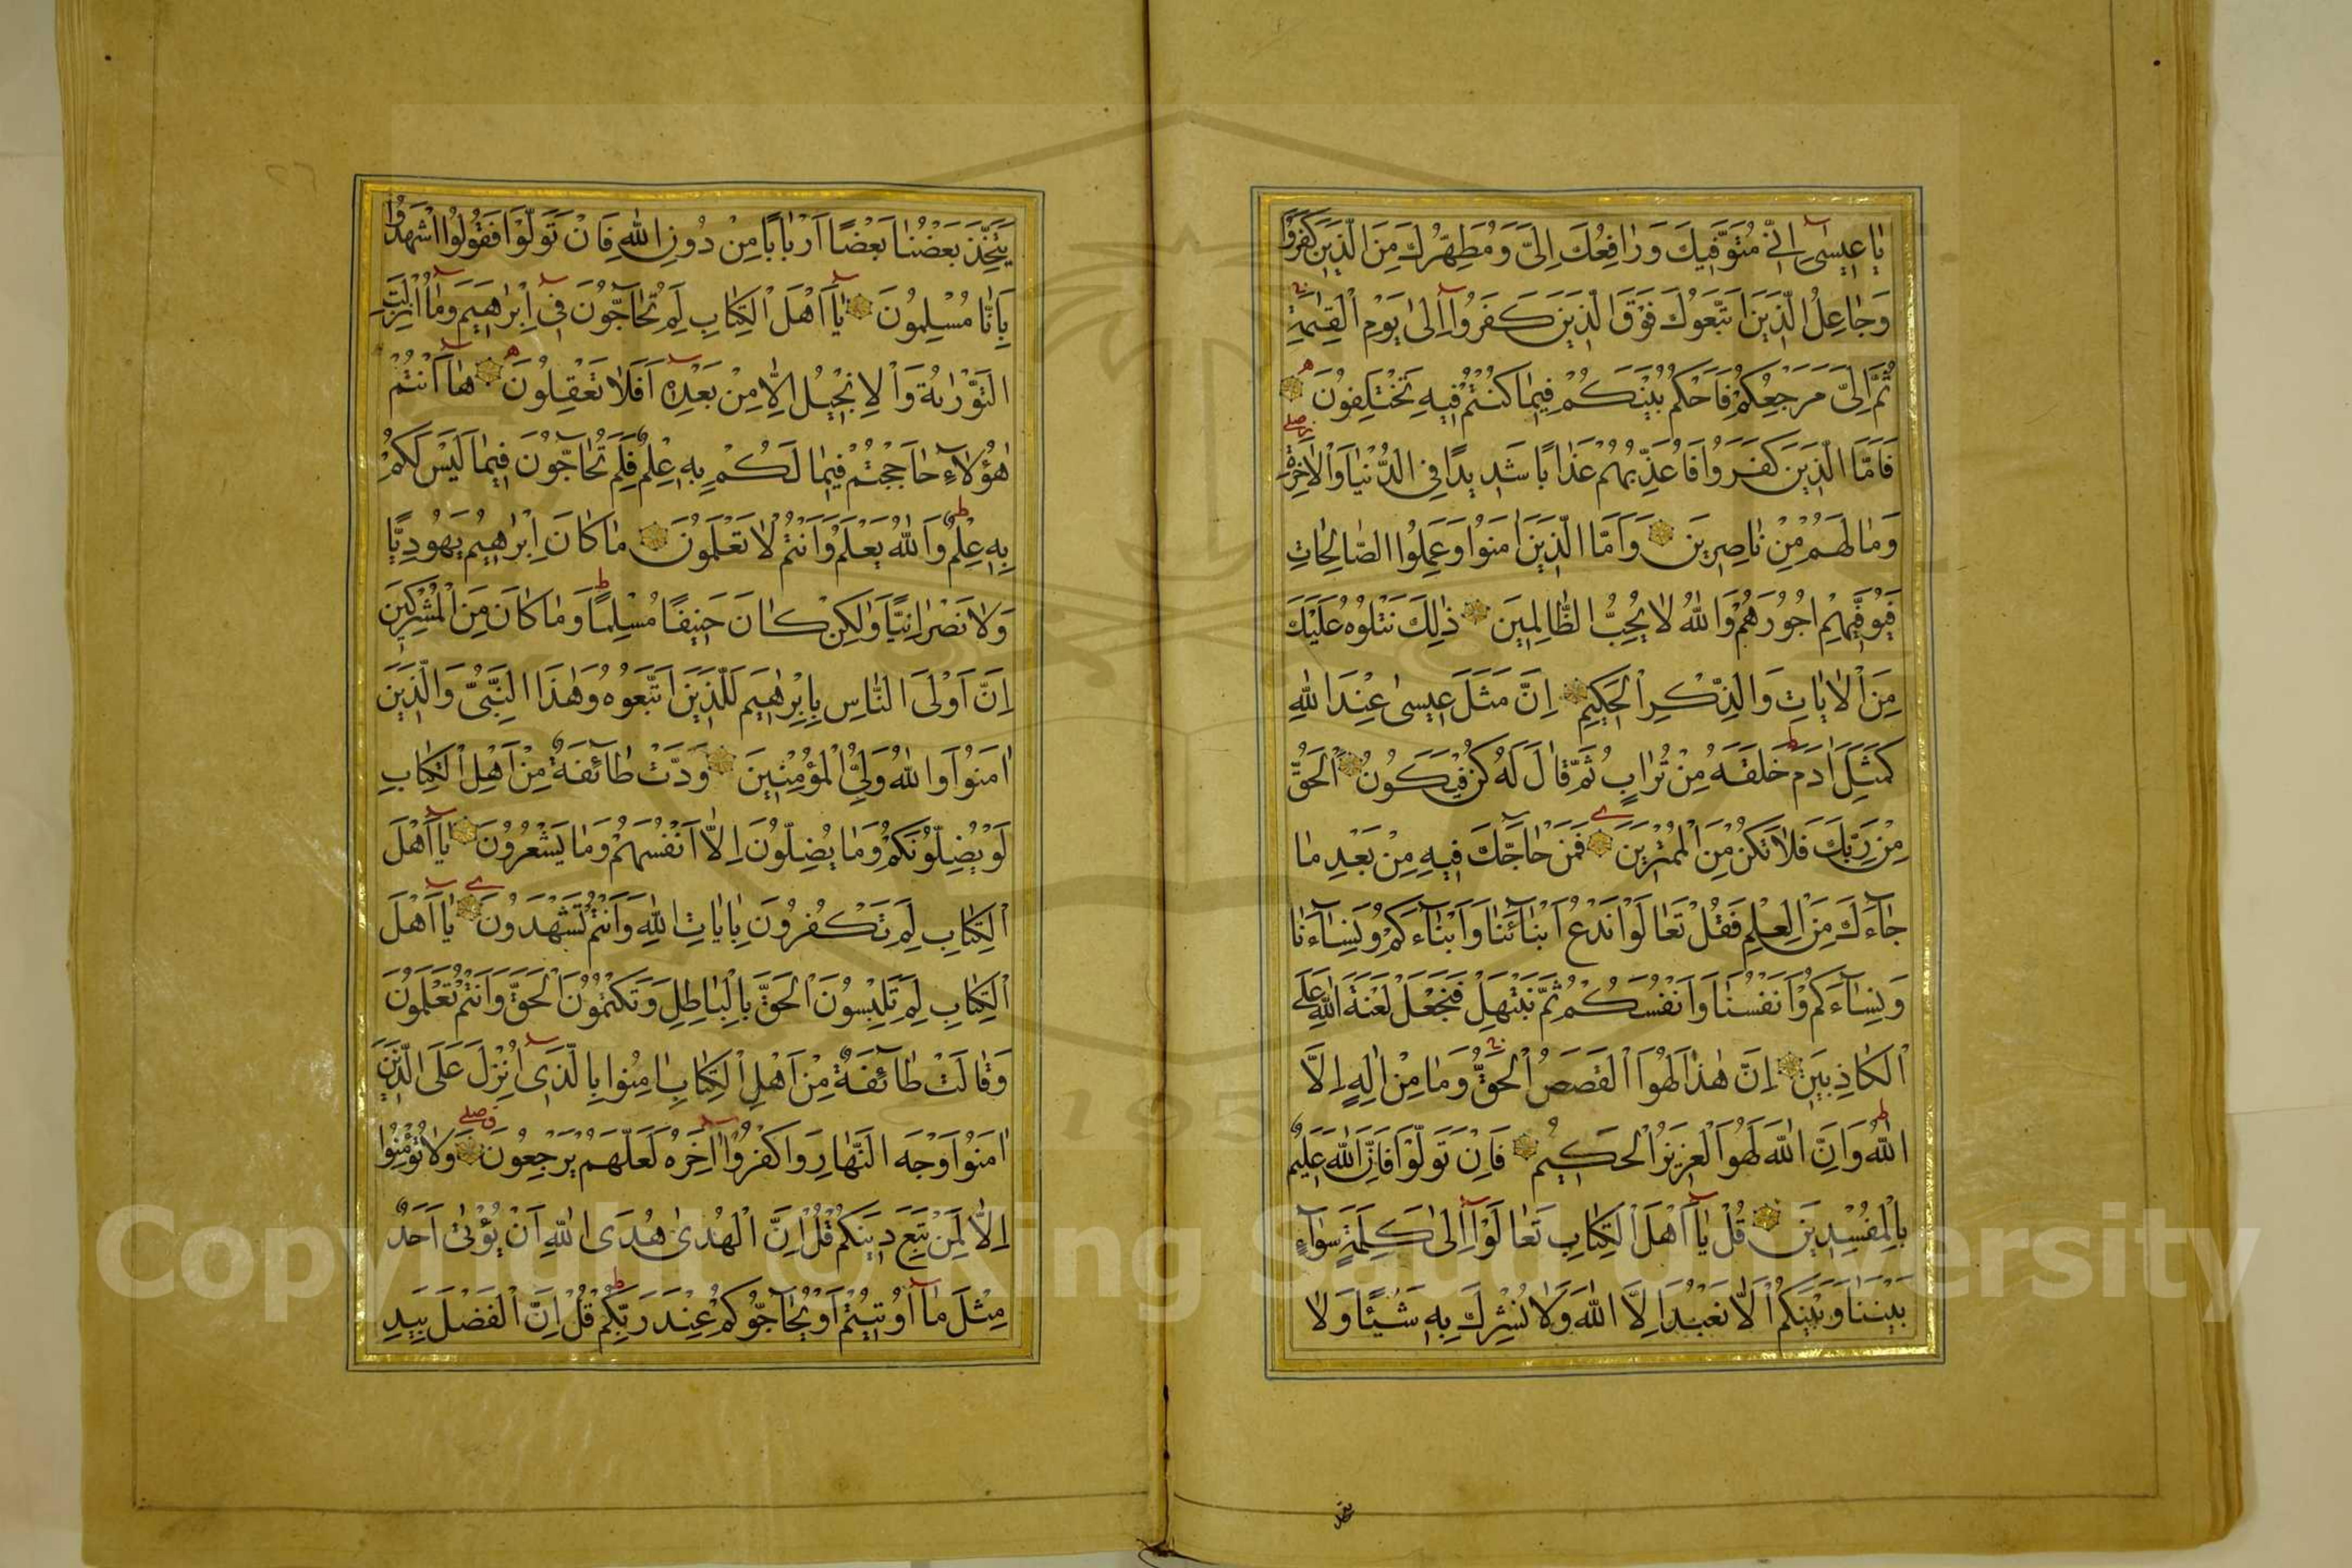 يَا عِيسَى إِنِّي مُتَوَفِّيكَ وَرَافِعُكَ إِلَيَّ وَمُطَهِّرُكَ مِنَ الَّذِينَ كَفَرُوا
وَجَاعِلُ الَّذِينَ اتَّبَعُوكَ فَوْقَ الَّذِينَ كَفَرُوا إِلَى يَوْمِ الْقِيٰمَةِ
ثُمَّ إِلَيَّ مَرْجِعُكُمْ فَأَحْكُمُ بَيْنَكُمْ فِيمَا كُنْتُمْ فِيهِ تَخْتَلِفُونَ
فَأَمَّا الَّذِينَ كَفَرُوا فَأُعَذِّبُهُمْ عَذَابًا شَدِيدًا فِي الدُّنْيَا وَالْآخِرَةِ
وَمَا لَهُمْ مِنْ نَاصِرِينَ وَأَمَّا الَّذِينَ آمَنُوا وَعَمِلُوا الصَّالِحَاتِ
فَيُوَفِّيهِمْ أُجُورَهُمْ وَاللَّهُ لَا يُحِبُّ الظَّالِمِينَ ذَلِكَ نَتْلُوهُ عَلَيْكَ
مِنَ الْآيَاتِ وَالذِّكْرِ الْحَكِيمِ إِنَّ مَثَلَ عِيسَى عِنْدَ اللَّهِ
كَمَثَلِ آدَمَ خَلَقَهُ مِنْ تُرَابٍ ثُمَّ قَالَ لَهُ كُنْ فَيَكُونُ الْحَقُّ
مِنْ رَبِّكَ فَلَا تَكُنْ مِنَ الْمُمْتَرِينَ فَمَنْ حَاجَّكَ فِيهِ مِنْ بَعْدِ مَا
جَاءَكَ مِنَ الْعِلْمِ فَقُلْ تَعَالَوْا نَدْعُ أَبْنَائَنَا وَأَبْنَاءَكُمْ وَنِسَاءَنَا
وَنِسَاءَكُمْ وَأَنْفُسَنَا وَأَنْفُسَكُمْ ثُمَّ نَبْتَهِلْ فَنَجْعَلْ لَعْنَةَ اللَّهِ عَلَى
الْكَاذِبِينَ إِنَّ هَذَا لَهُوَ الْقَصَصُ الْحَقُّ وَمَا مِنْ إِلَهٍ إِلَّا
اللَّهُ وَإِنَّ اللَّهَ لَهُوَ الْعَزِيزُ الْحَكِيمُ فَإِنْ تَوَلَّوْا فَإِنَّ اللَّهَ عَلِيمٌ
بِالْمُفْسِدِينَ قُلْ يَا أَهْلَ الْكِتَابِ تَعَالَوْا إِلَى كَلِمَةٍ سَوَاءٍ
بَيْنَنَا وَبَيْنَكُمْ أَلَّا نَعْبُدَ إِلَّا اللَّهَ وَلَا نُشْرِكَ بِهِ شَيْئًا وَلَا
يَتَّخِذَ بَعْضُنَا بَعْضًا أَرْبَابًا مِنْ دُونِ اللَّهِ فَإِنْ تَوَلَّوْا فَقُولُوا اشْهَدُوا
بِأَنَّا مُسْلِمُونَ يَا أَهْلَ الْكِتَابِ لِمَ تُحَاجُّونَ فِي إِبْرٰهِيمَ وَمَا أُنْزِلَتِ
التَّوْرٰىةُ وَالْإِنْجِيلُ إِلَّا مِنْ بَعْدِهِ أَفَلَا تَعْقِلُونَ هَا أَنْتُمْ
هٰؤُلَاءِ حَاجَجْتُمْ فِيمَا لَكُمْ بِهِ عِلْمٌ فَلِمَ تُحَاجُّونَ فِيمَا لَيْسَ لَكُمْ
بِهِ عِلْمٌ وَاللَّهُ يَعْلَمُ وَأَنْتُمْ لَا تَعْلَمُونَ مَا كَانَ إِبْرٰهِيمُ يَهُودِيًّا
وَلَا نَصْرَانِيًّا وَلٰكِنْ كَانَ حَنِيفًا مُسْلِمًا وَمَا كَانَ مِنَ الْمُشْرِكِينَ
إِنَّ أَوْلَى النَّاسِ بِإِبْرٰهِيمَ لَلَّذِينَ اتَّبَعُوهُ وَهٰذَا النَّبِيُّ وَالَّذِينَ
آمَنُوا وَاللَّهُ وَلِيُّ الْمُؤْمِنِينَ وَدَّتْ طَائِفَةٌ مِنْ أَهْلِ الْكِتَابِ
لَوْ يُضِلُّونَكُمْ وَمَا يُضِلُّونَ إِلَّا أَنْفُسَهُمْ وَمَا يَشْعُرُونَ يَا أَهْلَ
الْكِتَابِ لِمَ تَكْفُرُونَ بِآيَاتِ اللَّهِ وَأَنْتُمْ تَشْهَدُونَ يَا أَهْلَ
الْكِتَابِ لِمَ تَلْبِسُونَ الْحَقَّ بِالْبَاطِلِ وَتَكْتُمُونَ الْحَقَّ وَأَنْتُمْ تَعْلَمُونَ
وَقَالَتْ طَائِفَةٌ مِنْ أَهْلِ الْكِتَابِ آمِنُوا بِالَّذِي أُنْزِلَ عَلَى الَّذِينَ
آمَنُوا وَجْهَ النَّهَارِ وَاكْفُرُوا آخِرَهُ لَعَلَّهُمْ يَرْجِعُونَ وَلَا تُؤْمِنُوا
إِلَّا لِمَنْ تَبِعَ دِينَكُمْ قُلْ إِنَّ الْهُدَى هُدَى اللَّهِ أَنْ يُؤْتَى أَحَدٌ
مِثْلَ مَا أُوتِيتُمْ أَوْ يُحَاجُّوكُمْ عِنْدَ رَبِّكُمْ قُلْ إِنَّ الْفَضْلَ بِيَدِ
Copyright © King Saud University
195